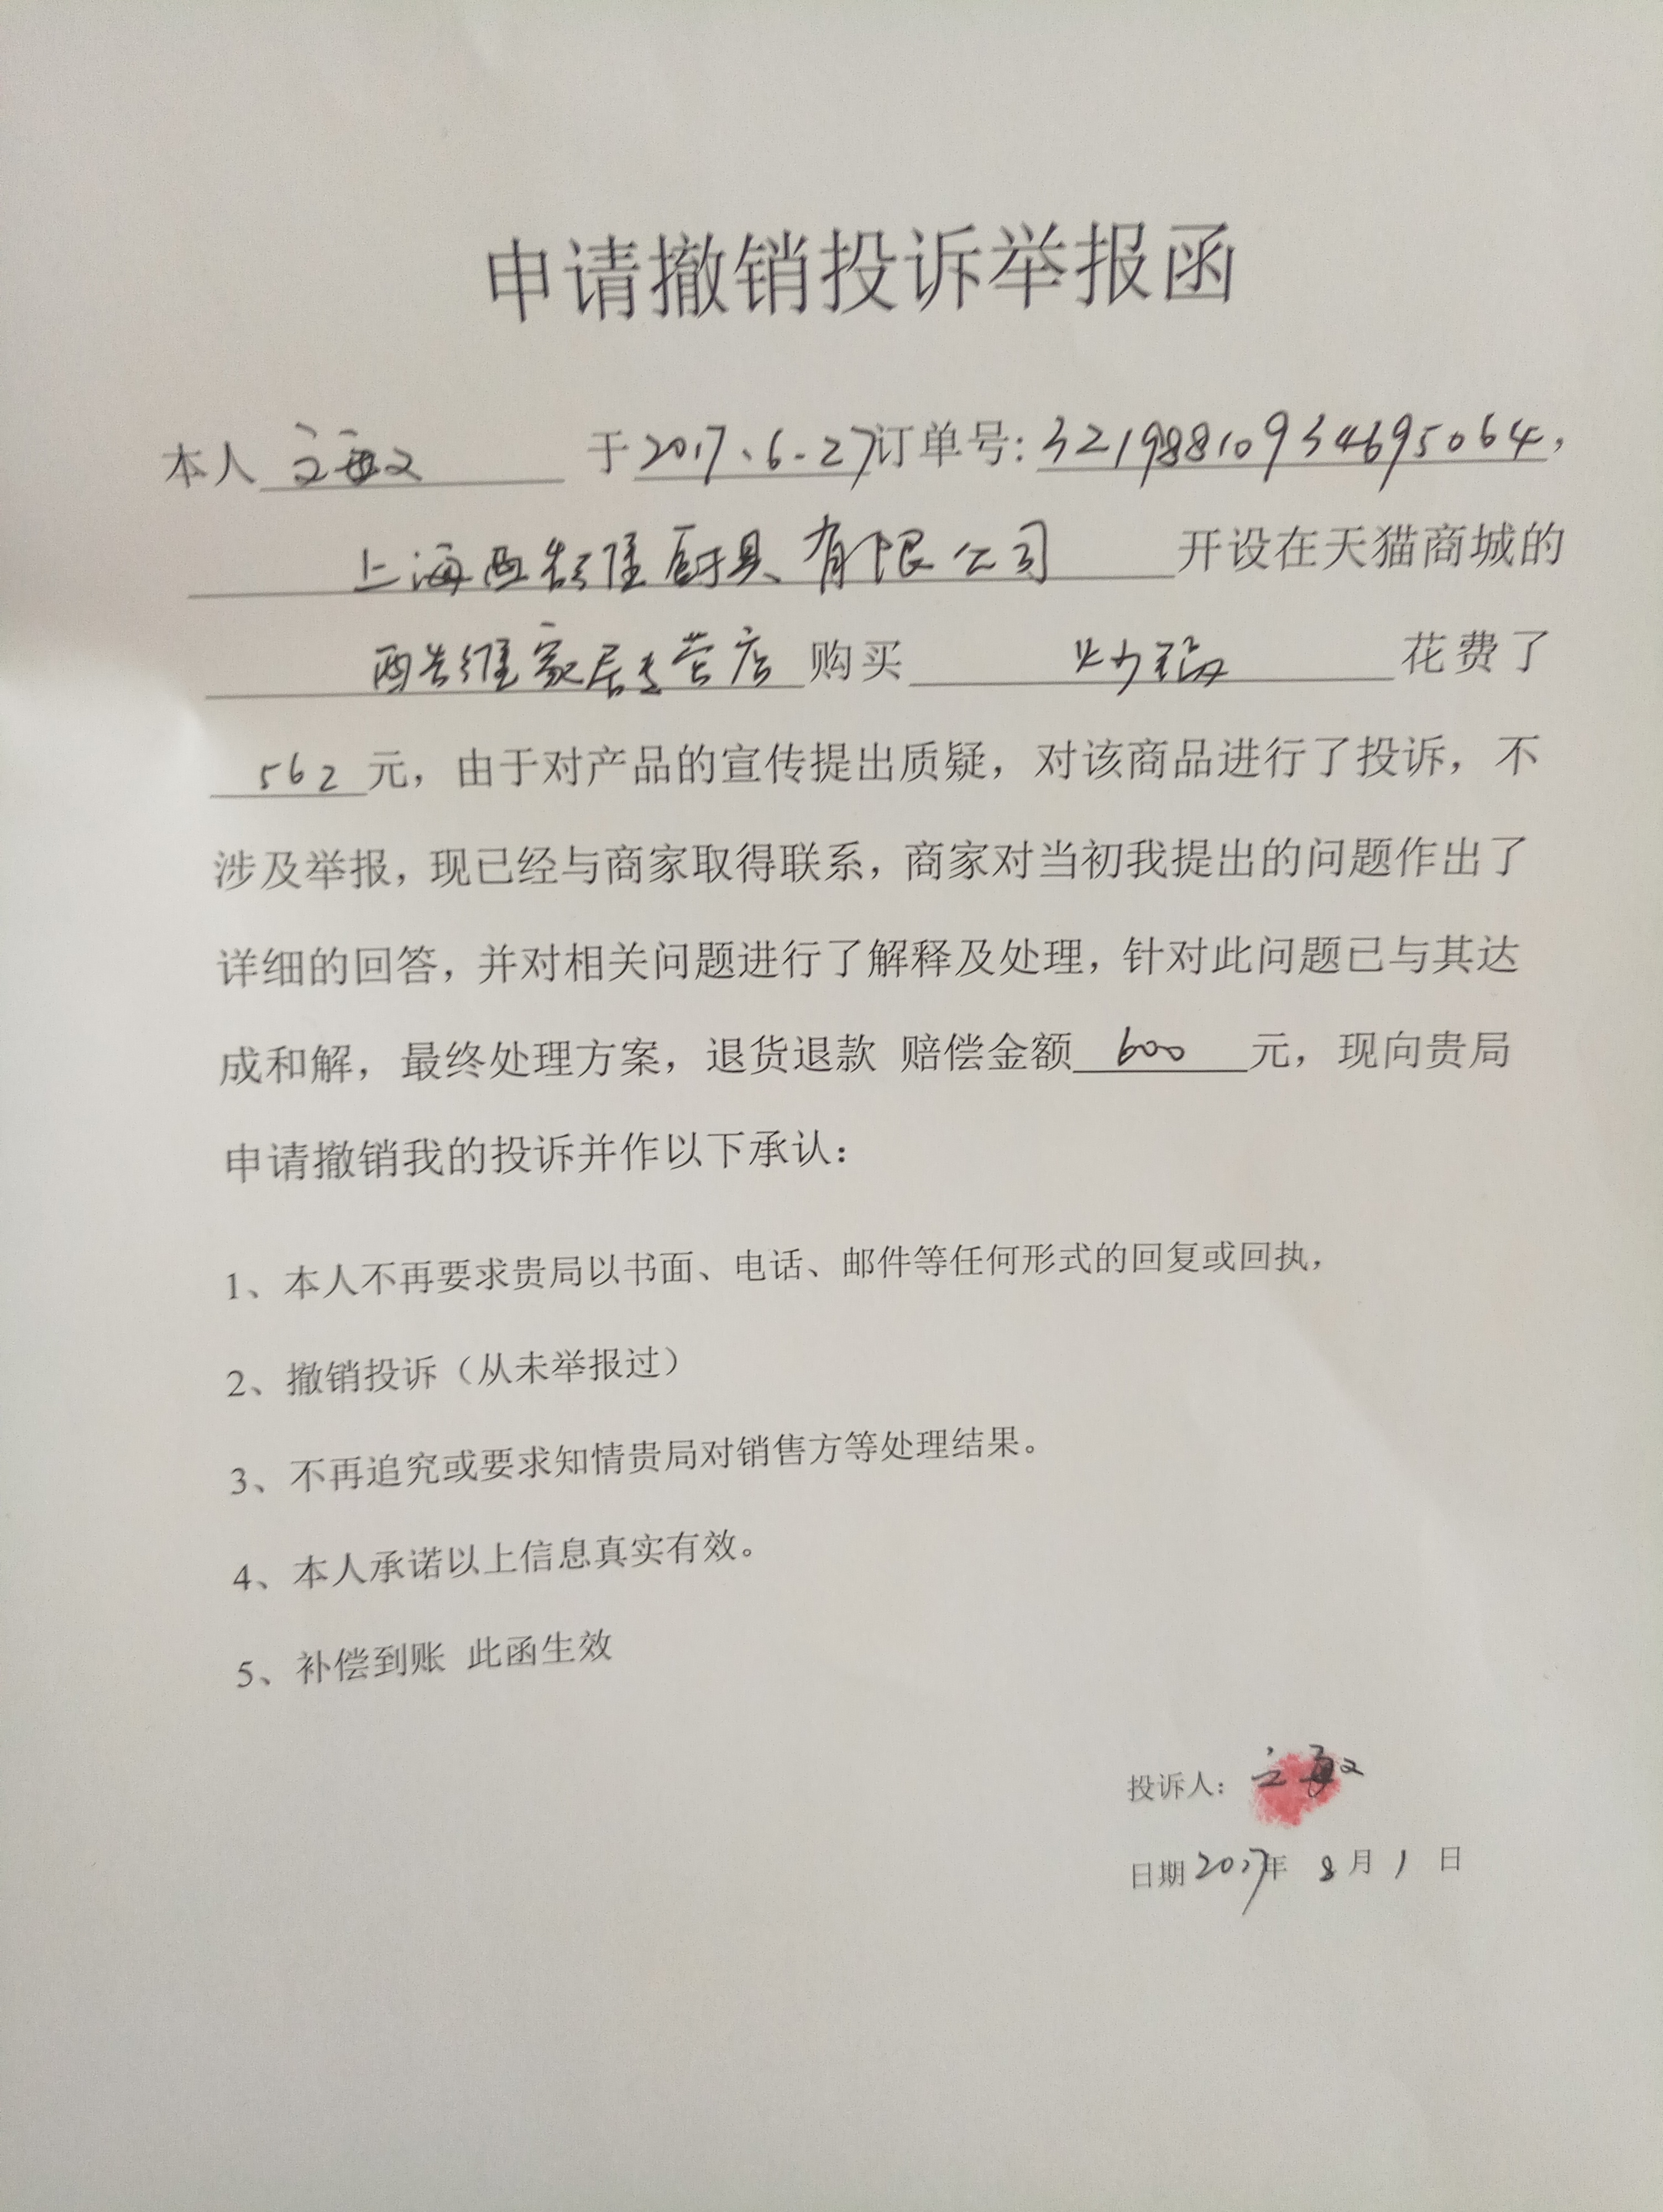 申请撤销投诉举报函
本人 于2017.6.27订单号:32198810934695064,
上海西告维厨具有限公司 开设在天猫商城的
西告维家居专营店 购买 花费了
562元，由于对产品的宣传提出质疑，对该商品进行了投诉，不
涉及举报，现已经与商家取得联系，商家对当初我提出的问题作出了
详细的回答，并对相关问题进行了解释及处理，针对此问题已与其达
成和解，最终处理方案，退货退款 赔偿金额 600 元，现向贵局
申请撤销我的投诉并作以下承认：
1、本人不再要求贵局以书面、电话、邮件等任何形式的回复或回执，
2、撤销投诉（从未举报过）
3、不再追究或要求知情贵局对销售方等处理结果。
4、本人承诺以上信息真实有效。
5、补偿到账 此函生效
投诉人：
日期2017年 8月 1 日